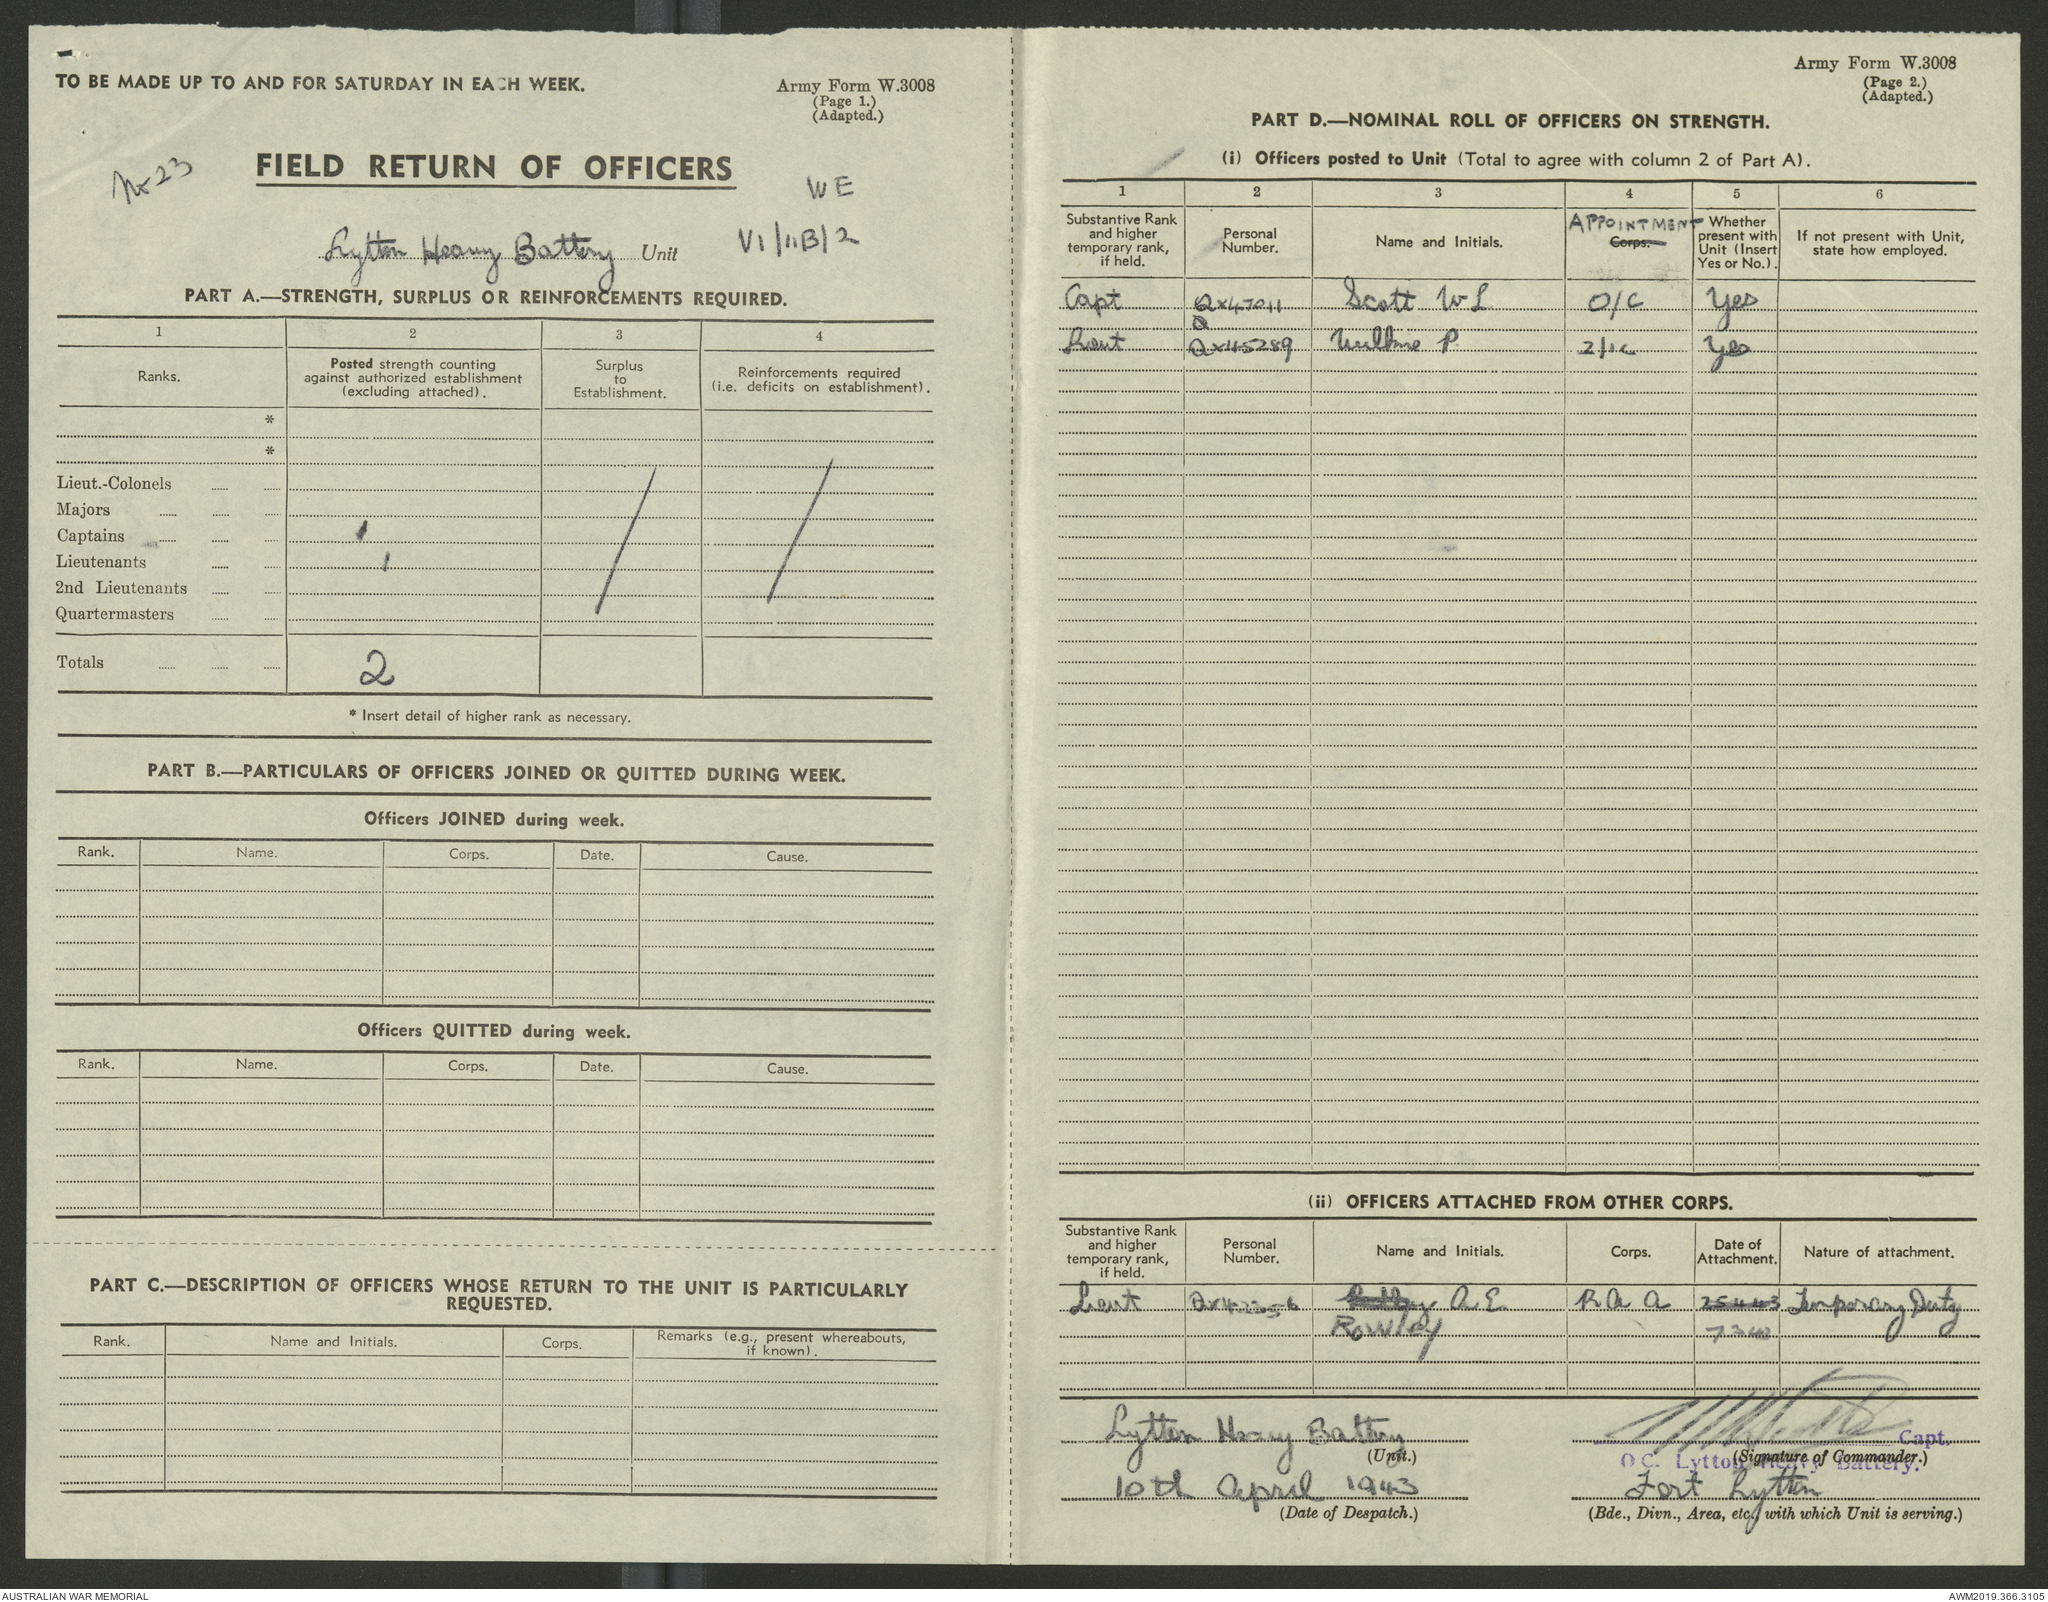 TO BE MADE UP TO AND FOR SATURDAY IN EACH WEEK.
Army Form W.3008
(Page 1.)
(Adapted.)
No 23
FIELD RETURN OF OFFICERS
WE
Lytton Heavy Battery Unit
VI/11B/2
PART A.—STRENGTH, SURPLUS OR REINFORCEMENTS REQUIRED.
1 2 3 4
Ranks.
Posted strength counting
against authorized establishment
(excluding attached).
Surplus
to
Establishment.
Reinforcements required
(i.e. deficits on establishment).
*
*
Lieut.-Colonels
Majors
Captains 1
Lieutenants 1
2nd Lieutenants
Quartermasters
Totals 2
* Insert detail of higher rank as necessary.
PART B.—PARTICULARS OF OFFICERS JOINED OR QUITTED DURING WEEK.
Officers JOINED during week.
Rank. Name. Corps. Date. Cause.
Officers QUITTED during week.
Rank. Name. Corps. Date. Cause.
PART C.—DESCRIPTION OF OFFICERS WHOSE RETURN TO THE UNIT IS PARTICULARLY
REQUESTED.
Rank. Name and Initials. Corps. Remarks (e.g., present whereabouts,
if known).
Army Form W.3008
(Page 2.)
(Adapted.)
PART D.—NOMINAL ROLL OF OFFICERS ON STRENGTH.
(i) Officers posted to Unit (Total to agree with column 2 of Part A).
1 2 3 4 5 6
Substantive Rank
and higher
temporary rank,
if held.
Personal
Number.
Name and Initials.
APPOINTMENT
Corps.
Whether
present with
Unit (Insert
Yes or No.).
If not present with Unit,
state how employed.
Capt QX47011 Scott W L O/C Yes
Lieut QX45289 Wilkie P. 2/ic Yes
(ii) OFFICERS ATTACHED FROM OTHER CORPS.
Substantive Rank
and higher
temporary rank,
if held.
Personal
Number.
Name and Initials.
Corps.
Date of
Attachment.
Nature of attachment.
Lieut A E R A A 25443 Temporary Duty
Rowley
Lytton Heavy Battery
(Unit.)
10th April 1943
(Date of Despatch.)
Capt.
(Signature of Commander.)
O.C. Lytton Heavy Battery.
Fort Lytton
(Bde., Divn., Area, etc., with which Unit is serving.)
AUSTRALIAN WAR MEMORIAL
AWM2019.366.3105